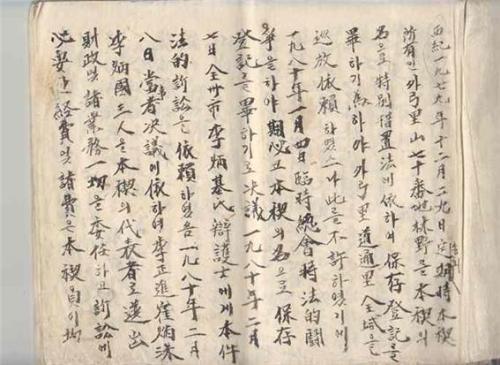 西紀一九七九年十二月二九日定期時本稧
所有인 里山七十番地林野를 本稧의
名으로 特別措置法에 依하여 保存登記을
畢하기 爲하야 里 道通里 全域을
巡放依賴하였으나 此를 不許하였기에
一九八十年一月四日臨時總會時法的鬪
爭을 하야 期必고 本稧의 名으로 保存
登記를 畢하기로 決議 一九八十年二月
七日全州市李炳基氏 辯護士에게 本件
法的訴訟을 依賴하였음 一九八十年二月
八日 當者決議에 依하여 李正進崔炳洙
李炳國三人을 本稧의 代表者로 選出
財政및 諸業務一切를 委任하고 訴訟에
必要한 經費및 諸費은 本稧員이 均